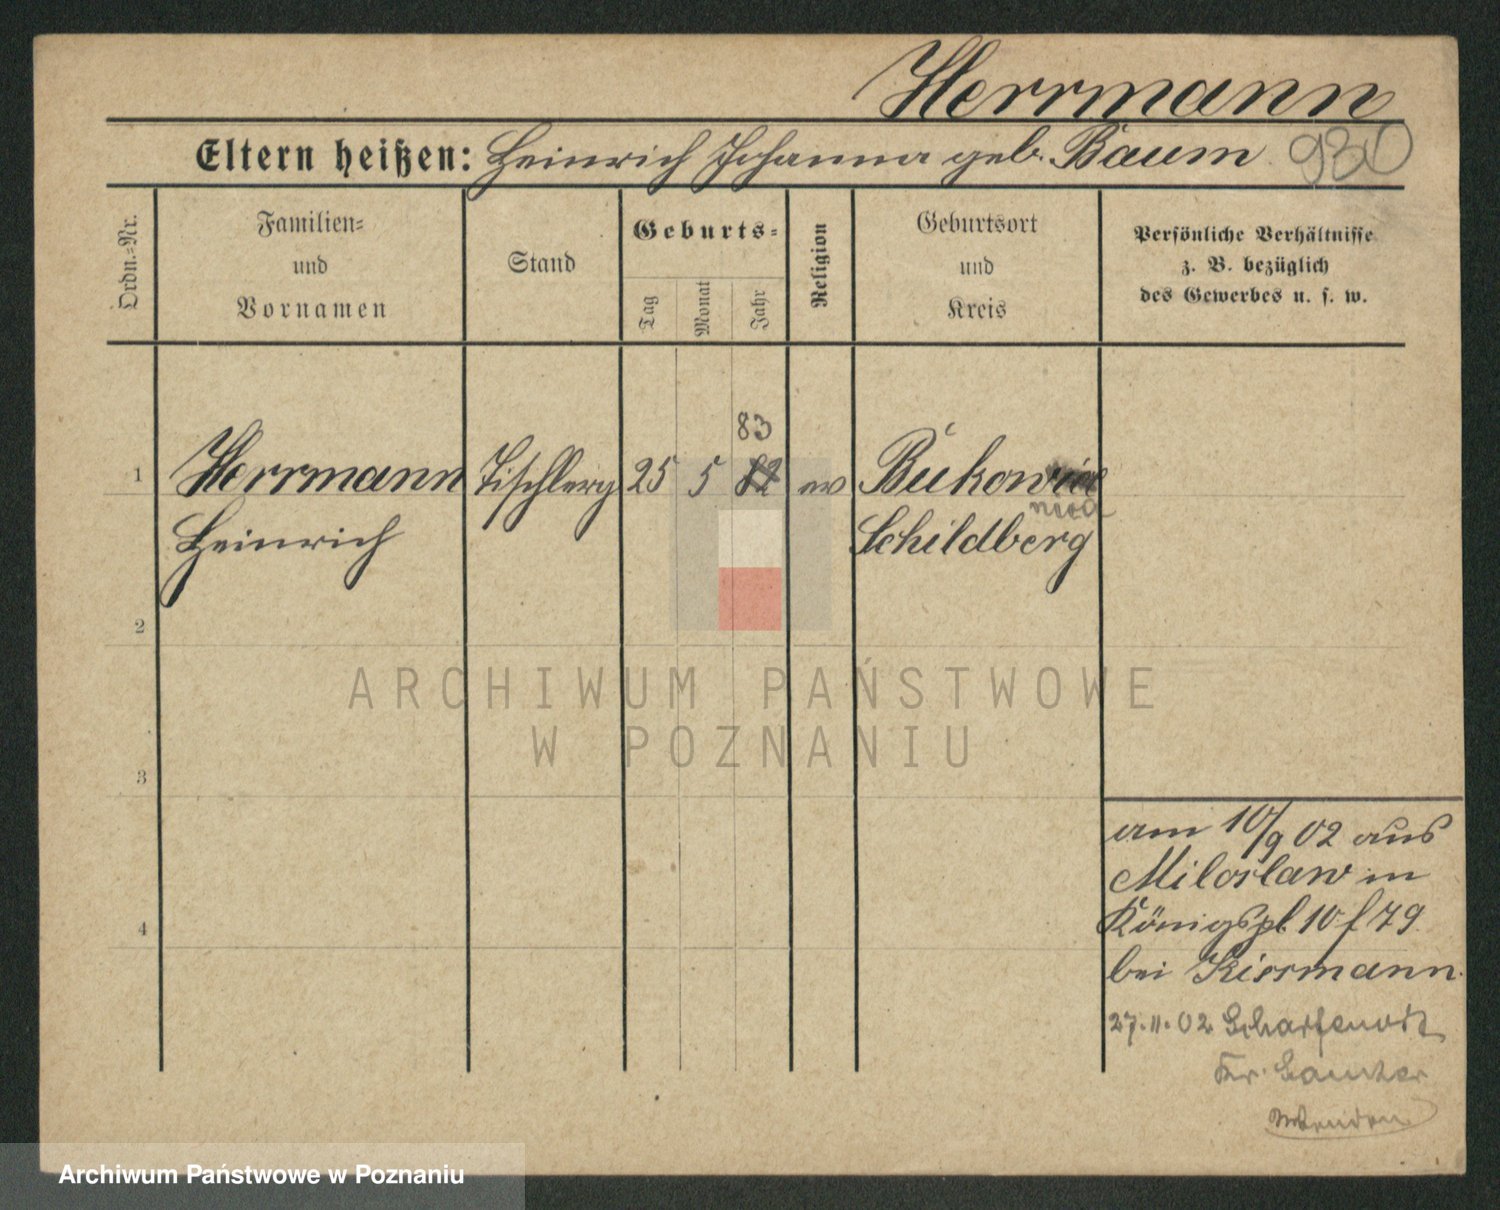 Herrmann
Eltern heißen: Heinrich Johanna geb. Baum
930
Ordn.=Nr.
Familien=
und
Vornamen
Stand
Geburts=
Tag
Monat
Jahr
Religion
Geburtsort
und
Kreis
Persönliche Verhältnisse
z. B. bezüglich
des Gewerbes u. s. w.
83
1 Herrmann Tischlerg 25 5 82 ev Bukow
Heinrich Schildberg
2
3
4
ARCHIWUM PAŃSTWOWE
W POZNANIU
am 10/9 02 aus
Miloslaw in
Königspl. 10 f 79
bei Kirrmann.
27.11.02 Scharfenort
Kr. Samter
Archiwum Państwowe w Poznaniu